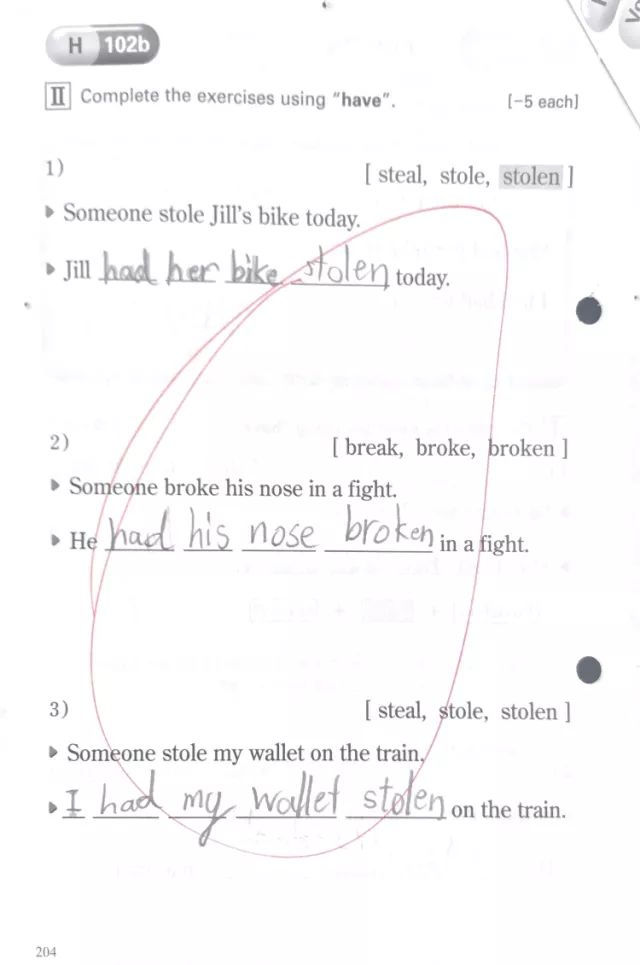 H 102b
II Complete the exercises using "have". [-5 each]
1) [ steal, stole, stolen ]
Someone stole Jill's bike today.
Jill had her bike stolen today.
2) [ break, broke, broken ]
Someone broke his nose in a fight.
He had his nose broken in a fight.
3) [ steal, stole, stolen ]
Someone stole my wallet on the train.
I had my wallet stolen on the train.
204